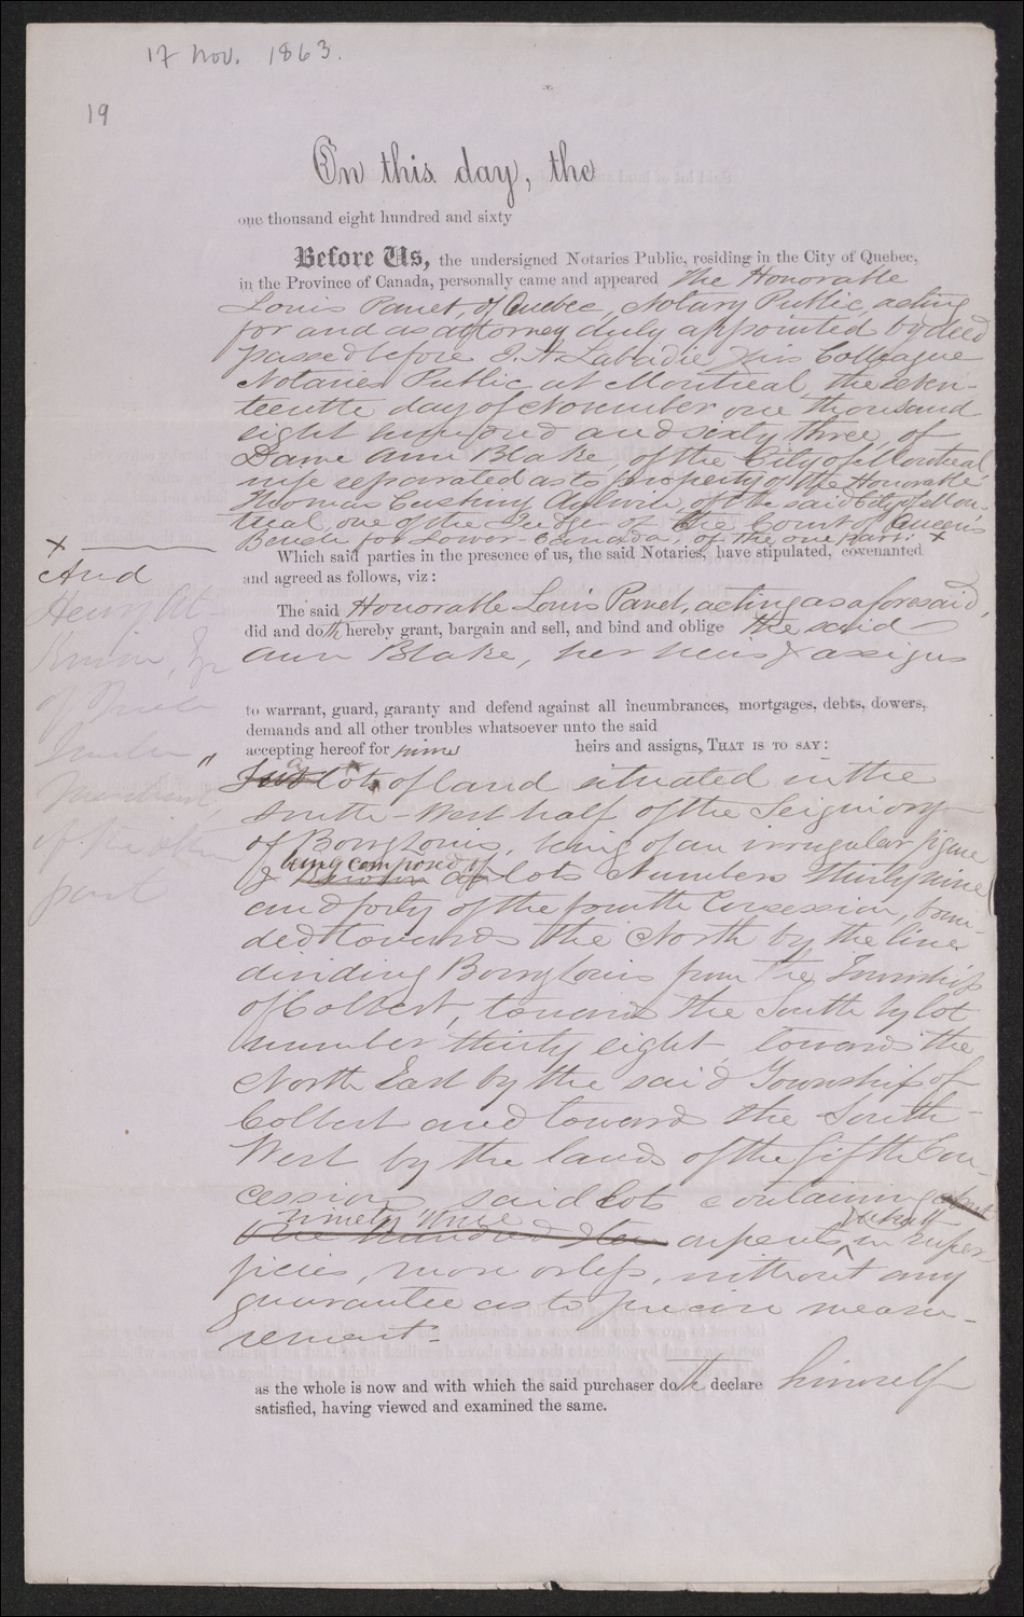 17 Nov. 1863.
19
On this day, the
one thousand eight hundred and sixty
Before Us, the undersigned Notaries Public, residing in the City of Quebec,
in the Province of Canada, personally came and appeared The Honorable
Louis Panet, of Quebec, Notary Public, acting
for and as attorney duly appointed by deed
passed before J. A. Labadie & his Colleague
Notaries Public at Montreal the seven-
teenth day of November one thousand
eight hundred and sixty three, of
Dame Ann Blake, of the City of Montreal
wife separated as to property of the Honorable
Thomas Cushing Aylwin, of the said City of Mon-
treal one of the Judges of the Court of Queen's
Bench for Lower-Canada, of the one part: x
x
And
Henry At-
Esqr
of
Quebec
of the other
part
Which said parties in the presence of us, the said Notaries, have stipulated, covenanted
and agreed as follows, viz:
The said Honorable Louis Panet, acting as aforesaid,
did and doth hereby grant, bargain and sell, and bind and oblige the said
Ann Blake, her heirs & assigns
to warrant, guard, garanty and defend against all incumbrances, mortgages, debts, dowers,
demands and all other troubles whatsoever unto the said "
accepting hereof for heirs and assigns, THAT IS TO SAY:
a lot of land situated in the
South-West half of the Seigniory
of Bourg Louis, being of an irregular figure
& being composed of lots Numbers thirty nine
and forty of the fourth Concession, boun-
ded towards the North by the line
dividing Bourg Louis from the Township
of Colbert, towards the South by lot
number thirty eight, towards the
North East by the said Township of
Colbert and towards the South-
West by the lands of the fifth Con-
cession, said lots containing about
ninety three
One hundred & ten arpents, in super-
ficies, more or less, without any
guarantee as to precise measu-
rement-
as the whole is now and with which the said purchaser doth declare himself
satisfied, having viewed and examined the same.